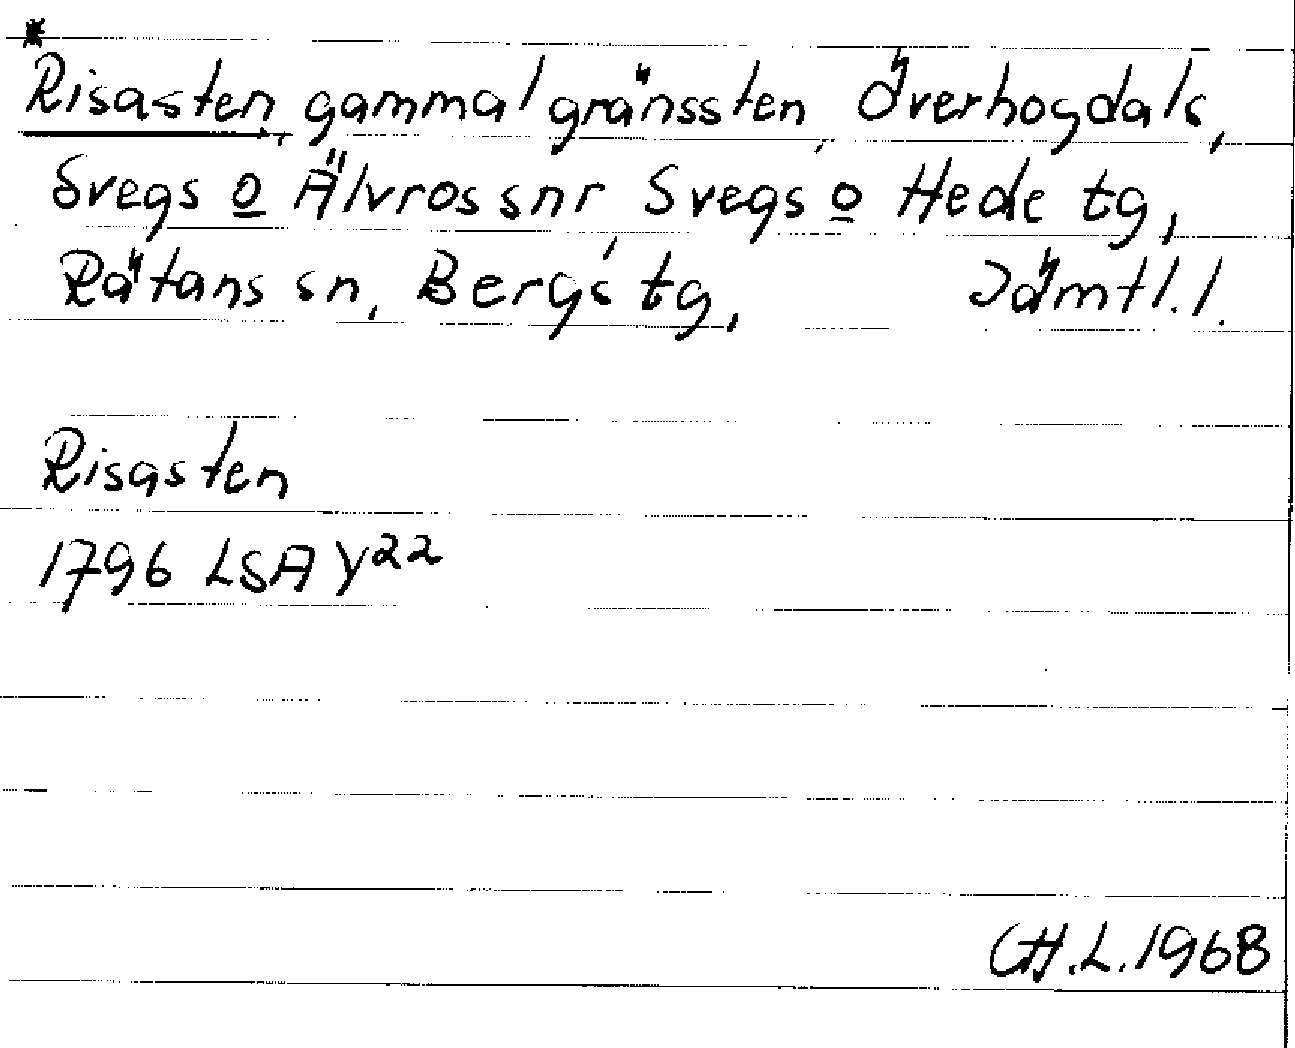 *
Risasten, gammal gränssten, Överhogdals,
Svegs o Älvros snr, Svegs o Hede tg,
Rätans sn, Bergs tg, Jämtl. l.
Risasten
1796 LSA Y22
CH.L. 1968